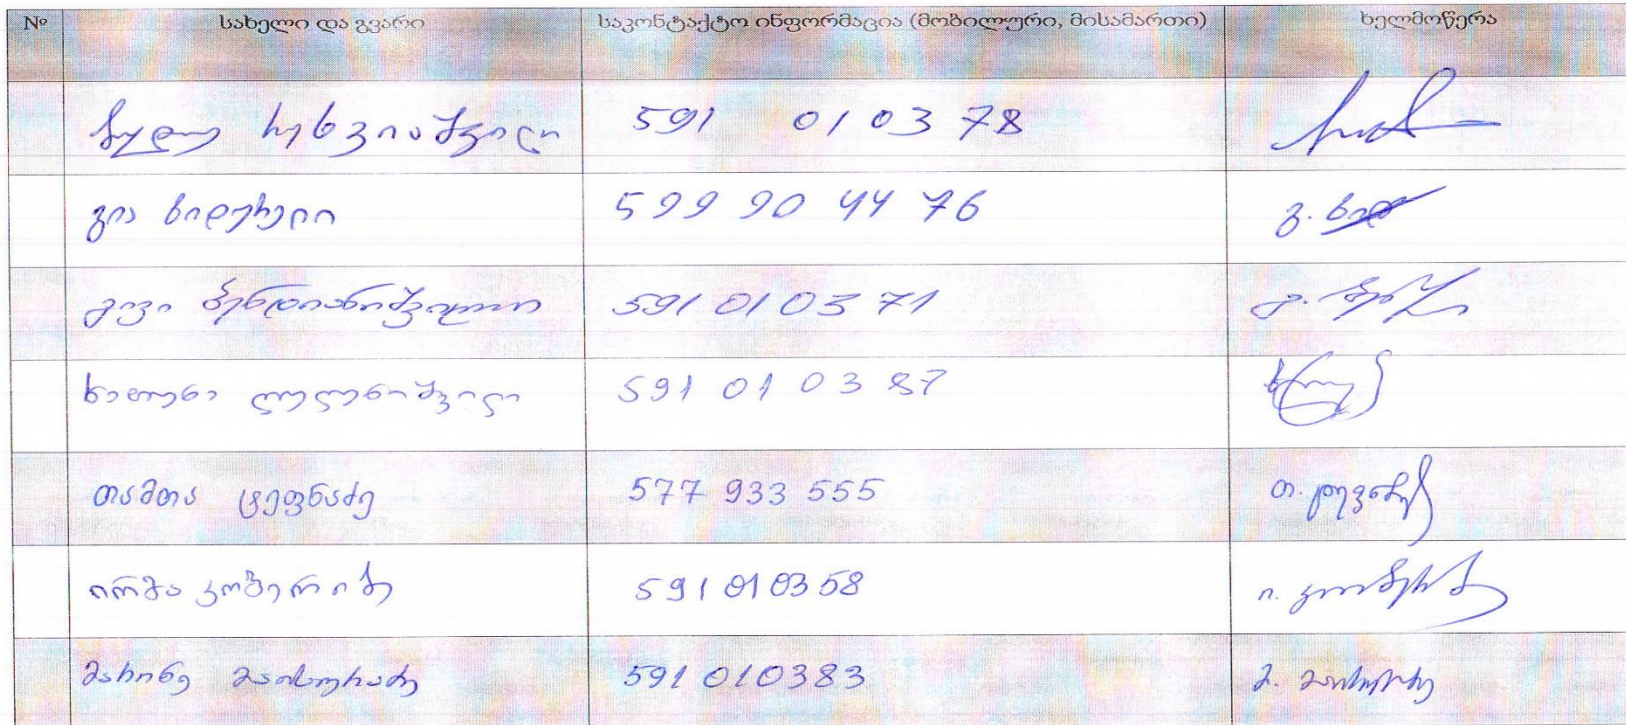 № სახელი და გვარი საკონტაქტო ინფორმაცია (მობილური, მისამართი) ხელმოწერა
ჩხვიაშვილი 591 01 03 78
გია ხიდურელი 599 90 44 76 გ. ხიდ
გივი ბენდიანიშვილი 591 01 03 71 გ.
ხათუნა ლულუნიშვილი 591 01 03 87
თამთა ცეფნაძე 577 933 555 თ.
ირმა კობერიძე 591 01 03 58 ი.
მარინე მაისურაძე 591 010383 მ. მაისურაძე